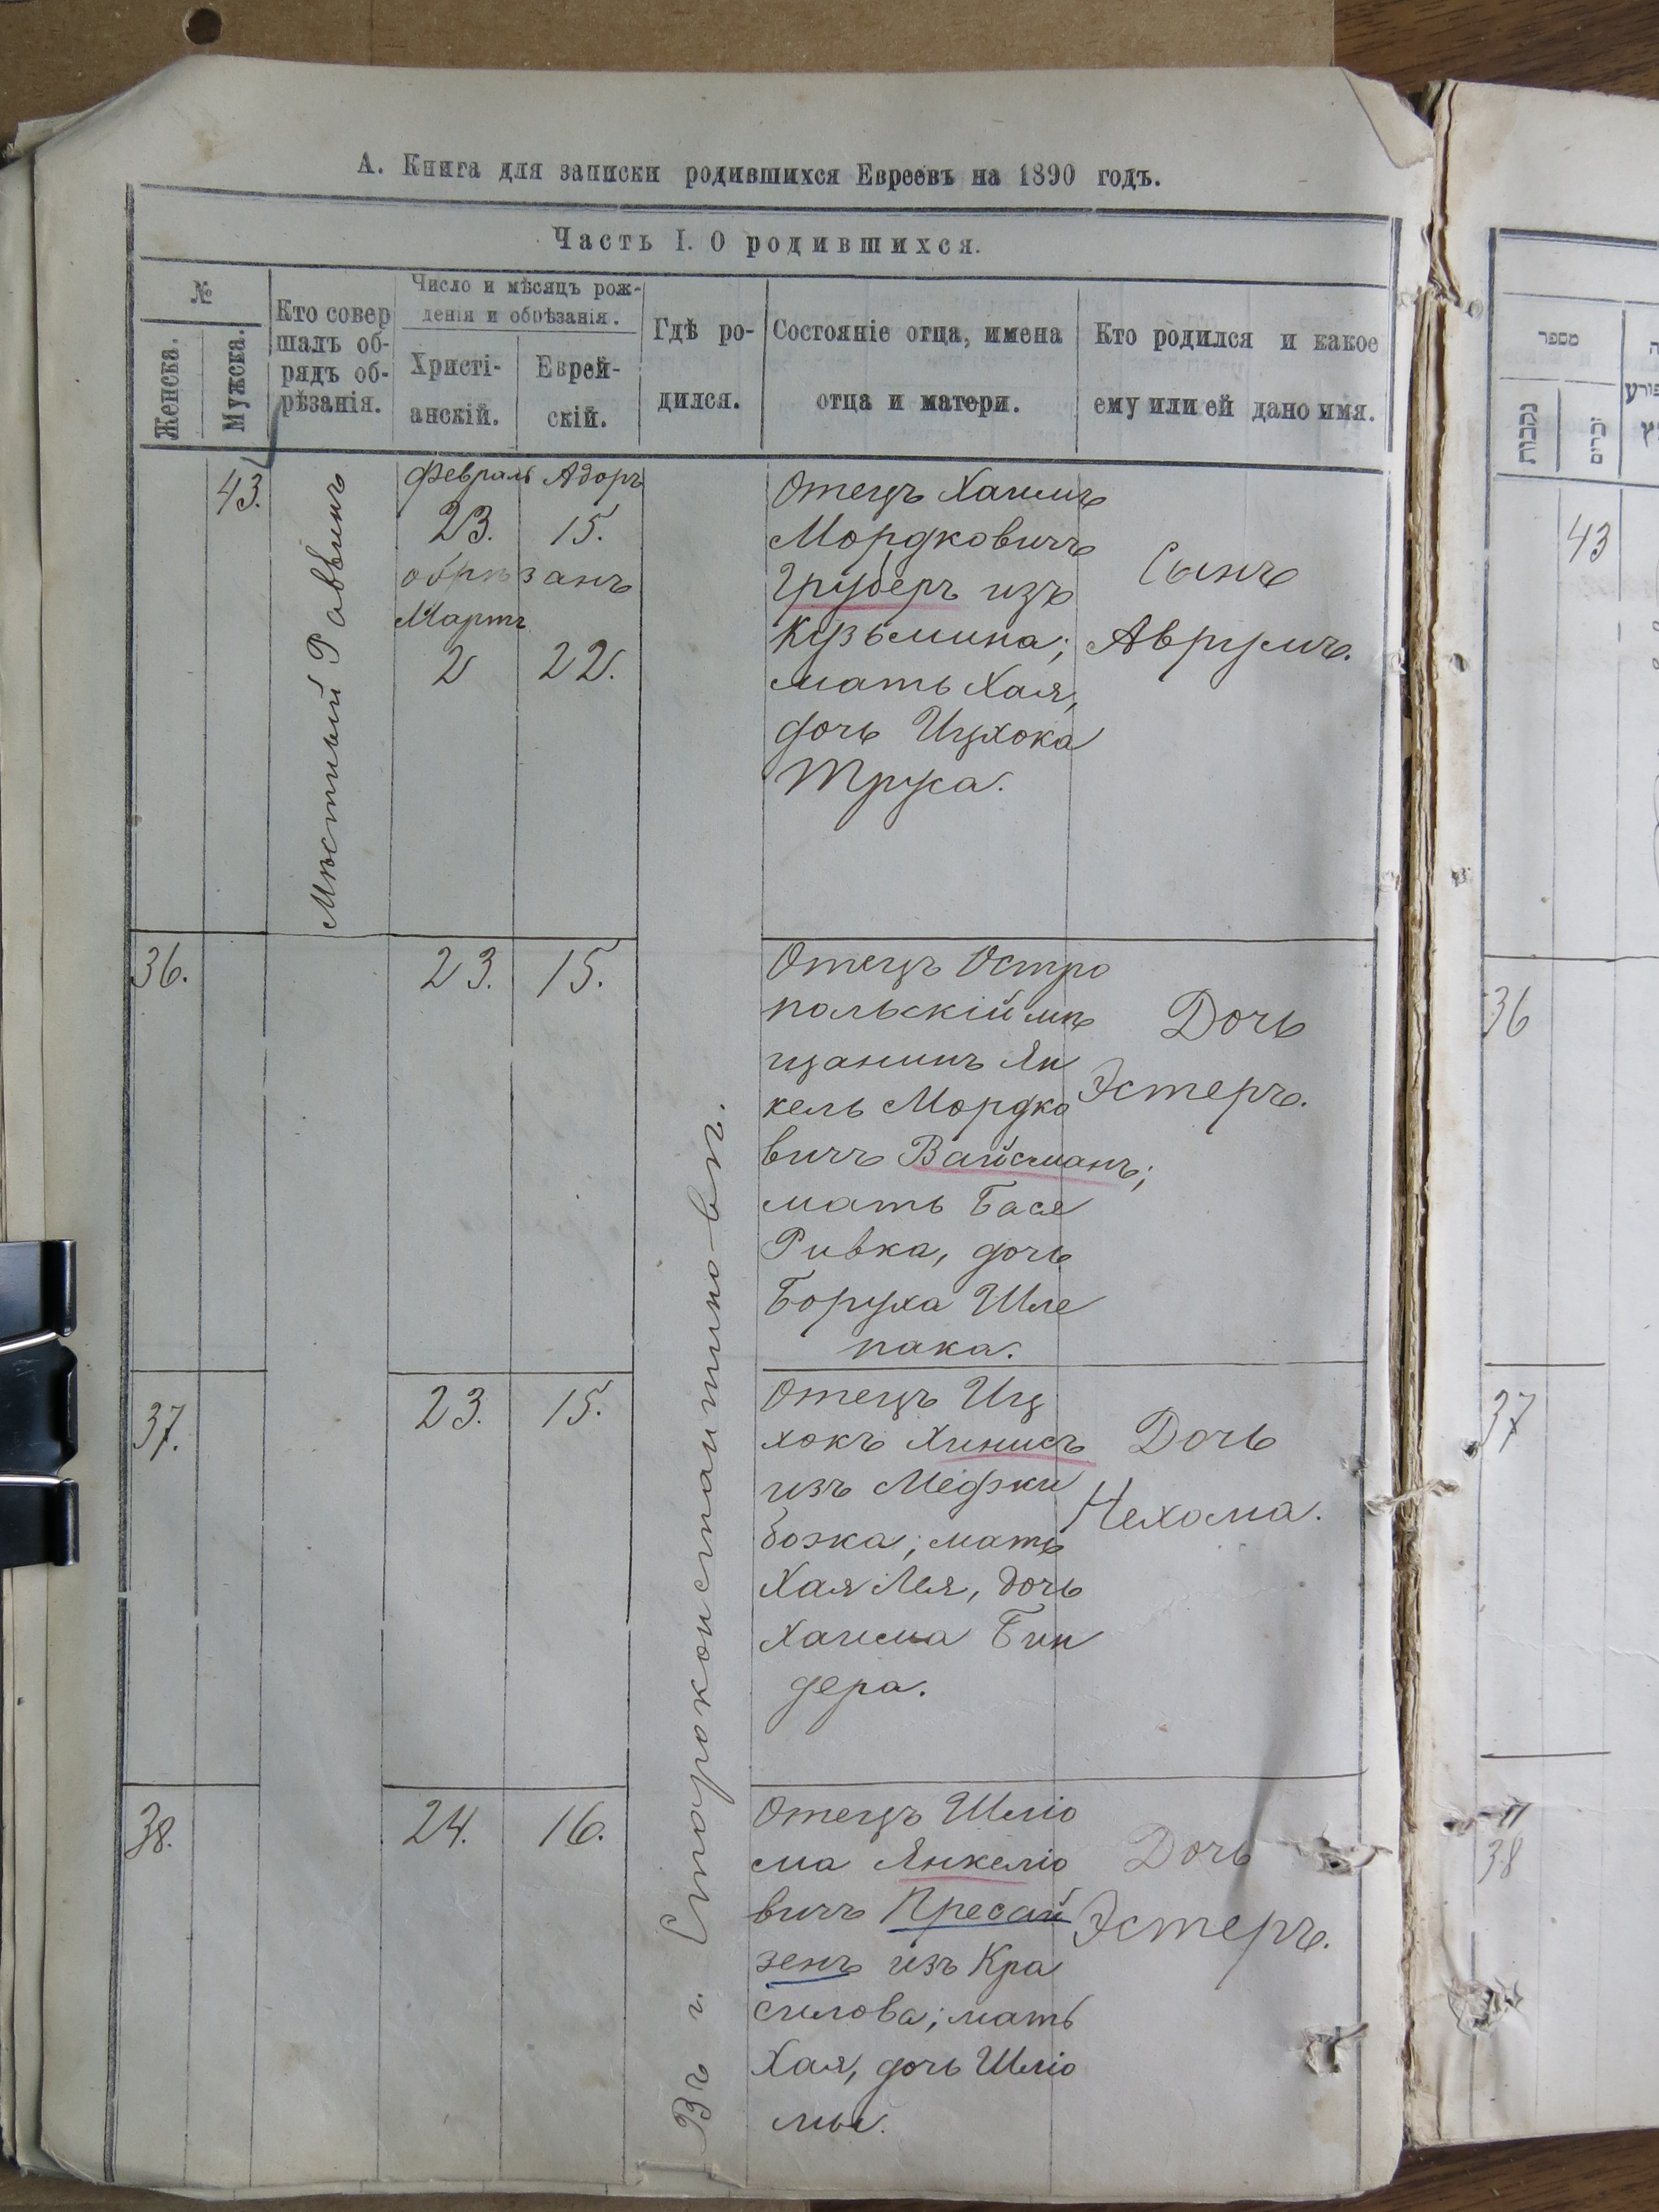 А. Книга для записки родившихся Евреевъ на 1890 годъ.
Часть I. О родившихся.
№
Женска.
Мужска.
Кто совер
шалъ об-
рядъ об-
рѣзанія.
Число и мѣсяцъ рож-
денія и обрѣзанія.
Христі-
анскій.
Еврей-
скій.
Гдѣ ро-
дился.
Состояніе отца, имена
отца и матери.
Кто родился и какое
ему или ей дано имя.
43.
Мѣстный Раввинъ
Февраль Адоръ
23. 15.
обрѣзанъ
Мартъ
2 22.
Въ г. Староконстантиновѣ.
Отецъ Хаимъ
Мордковичъ
Груберъ изъ
Кузьмина;
мать Хая,
дочь Ицхока
Труса.
Сынъ
Аврумъ.
36.
23. 15.
Отецъ Остро
польскій мѣ
щанинъ Ян
кель Мордко
вичъ Вайсманъ;
мать Бася
Ривка, дочь
Боруха Шле
пака.
Дочь
Эстеръ.
37.
23. 15.
Отецъ Иц
хокъ Хинисъ
изъ Меджи
божа; мать
Хая Лея, дочь
Хаима Бин
дера.
Дочь
Нехома.
38.
24. 16.
Отецъ Шліо
ма Янкеліо
вичъ Пресай
зенъ изъ Кра
силова; мать
Хая, дочь Шліо
мы.
Дочь
Эстеръ.
מספר
נקבות
זכרים
43
36
37
38